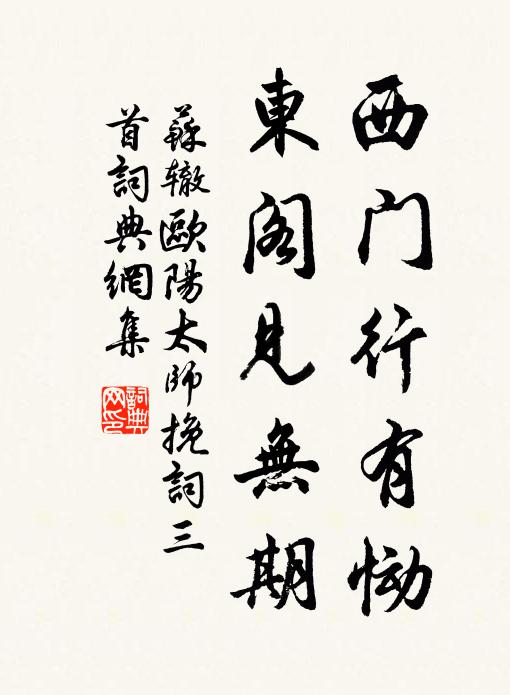 西门行有恸
東阁見無期
蘇辙歐陽太師挽詞三
首詞典網集
詞典
网印